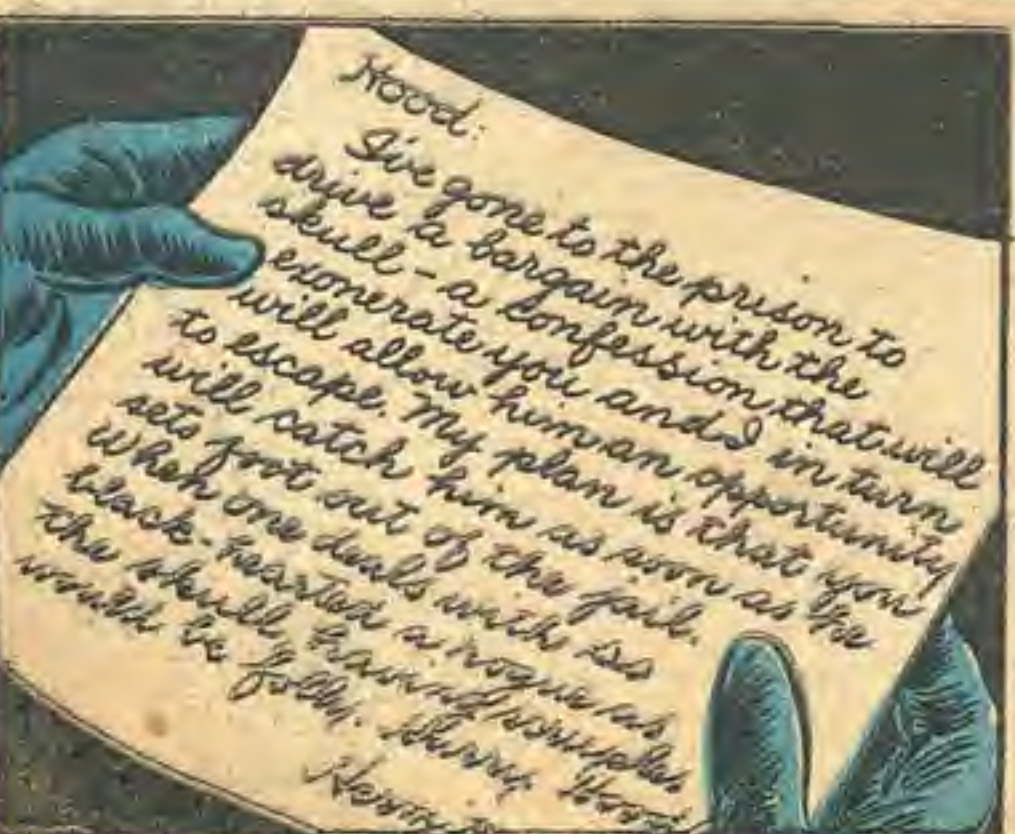 Hood:
I've gone to the prison to
drive a bargain with the
skull - a confession that will
exonerate you and I in turn
will allow him an opportunity
to escape. My plan is that you
will catch him as soon as he
sets foot out of the jail.
When one deals with so
black-hearted a rogue as
the skull, having scruples
would be folly. Hurry, Hood